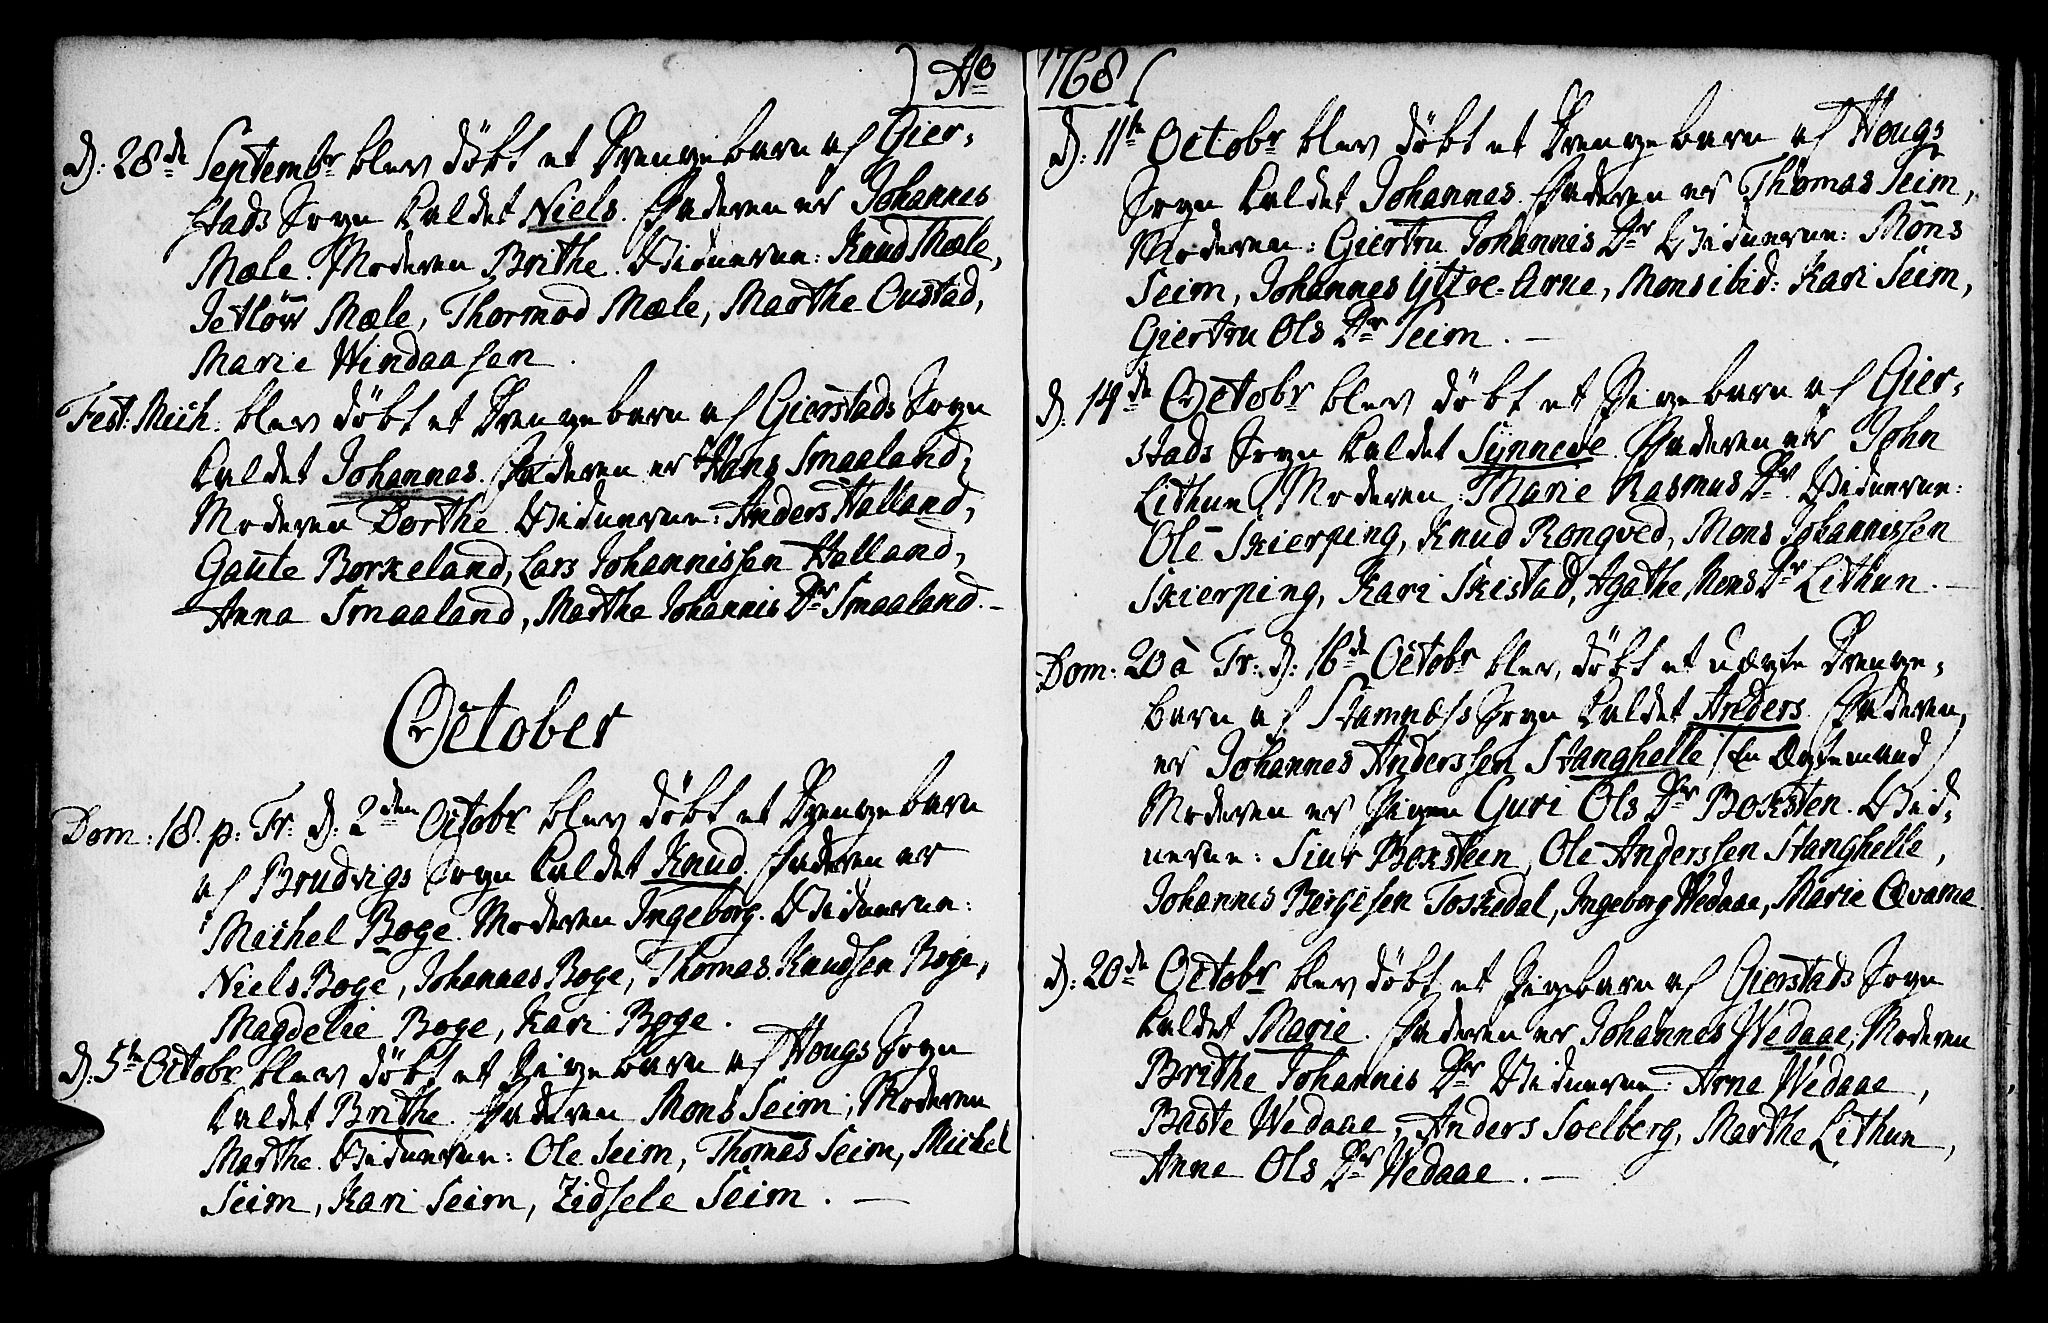 ) Ao
d: 28de Septembr blev döbt et Drengebarn af Gier-
stads Sogn kaldet Niels. Faderen er Johannes
Mæle. Moderen Brithe. Vidnerne: Knud Mæle,
Jetlöw Mæle, Thormod Mæle, Marthe Oustad,
Marie Windaasen.
Fest: Mich: blev döbt et Drengebarn af Gierstads Sogn
kaldet Johannes. Faderen er Hans Smaaland,
Moderen Dorthe. Vidnerne: Anders Halland,
Gaute Borkeland, Lars Johannissen Halland,
Anna Smaaland, Marthe Johannis Dr Smaaland. –
October
Dom: 18. p: Tr: d: 2den Octobr blev döbt et Drengebarn
af Brudvigs Sogn kaldet Knud. Faderen er
Michel Boge. Moderen Ingeborg. Vidnerne:
Niels Boge, Johannes Boge, Thomas Knudsen Boge,
Magdelie Boge, Kari Boge.
d: 5te Octobr blev döbt et Pigebarn af Hougs Sogn
kaldet Brithe. Faderen Mons Seim, Moderen
Marthe. Vidnerne: Ole Seim, Thomas Seim, Michel
Seim, Kari Seim, Zidsele Seim. –
1768 (
d: 11te Octobr blev döbt et Drengebarn af Hougs
Sogn kaldet Johannes. Faderen er Thomas Seim,
Moderen: Giertru Johannis Dr Vidnerne: Mons
Seim, Johannes Yttre-Arne, Mons ibid: Kari Seim,
Giertru Ols Dr Seim. –
d: 14de Octobr blev döbt et Pigebarn af Gier-
stads Sogn kaldet Synneve. Faderen er John
Lithun, Moderen: Marie Rasmus Dr. Vidnerne:
Ole Skierping, Knud Rongved, Mons Johannissen
Skierping, Kari Skistad, Agathe Mons Dr Lithun. –
Dom: 20 à Tr: d: 16de Octobr blev döbt et uægte Drenge-
barn af Stamnæs Sogn kaldet Anders. Faderen
er Johannes Anderssen Stanghelle (En Ægtemand)
Moderen er Pigen Guri Ols Dr Boksten. Vid-
nerne: Siur Boxsteen, Ole Anderssen Stanghelle,
Johannes Børgesen Toskedal, Ingeborg Wedaae, Marie Qvame.
d: 20de Octobr blev döbt et Pigebarn af Gierstads Sogn
kaldet Marie. Faderen er Johannes Wedaae, Moderen
Brithe Johannis Dr Vidnerne: Arne Wedaae,
Baste Wedaae, Anders Solberg, Marthe Lithun,
Anne Ols Dr Wedaae. –